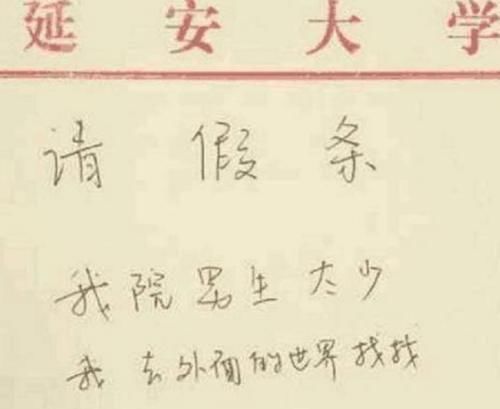 延安大学
请假条
我院男生太少
我去外面的世界找找